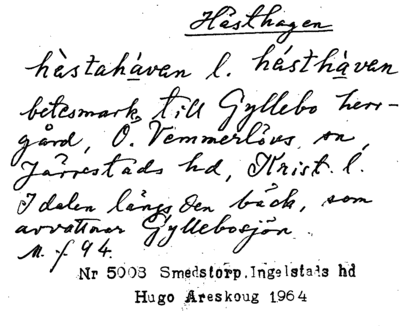 Hästhagen
hàstahávan l. hásthávan
betesmark till Gyllebo herr-
gård, Ö. Vemmerlövs sn,
Järrestads hd, Krist. l.
I dalen längs den bäck, som
avvattnar Gyllebosjön.
M. f 94.
Nr 5003 Smedstorp.Ingelstads hd
Hugo Areskoug 1964